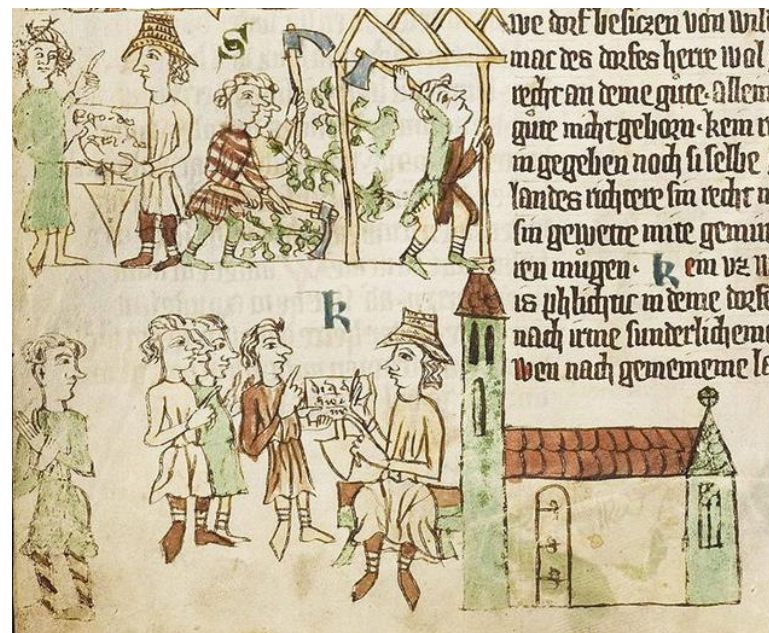 S
Ego dei
gra
we dorf besiczen von wilt
mac des dorfes herre wol
recht an deme gute. allem
gute nicht geborn. kein
in gegeben noch si selbe
landes richtere sin recht
sin gewette mite gemin
ren mugen. k ein vz
is phlichtic in deme dorfe
k nach irme sunderlicheme
wen nach gemeineme la